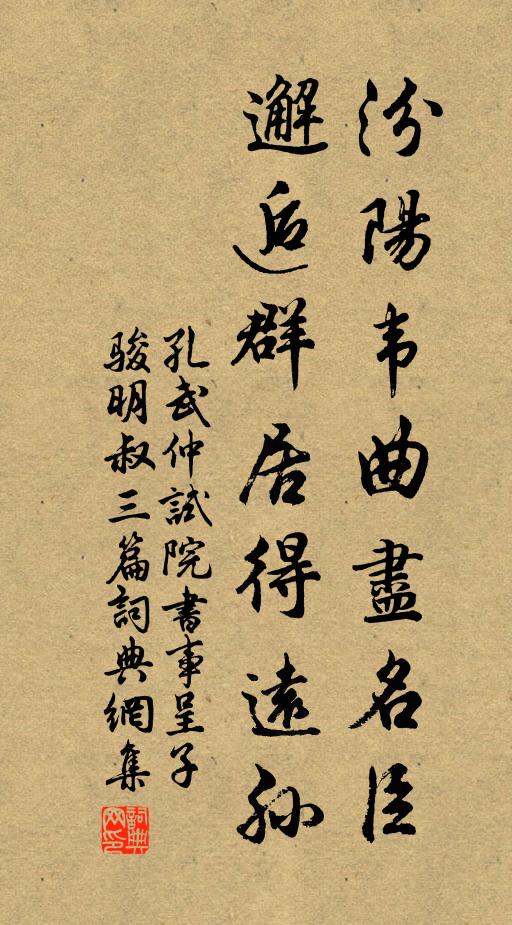 汾陽韦曲盡名臣
邂逅群居得遠孙
孔武仲試院書事呈子
骏明叔三篇詞典網集
詞典
网印